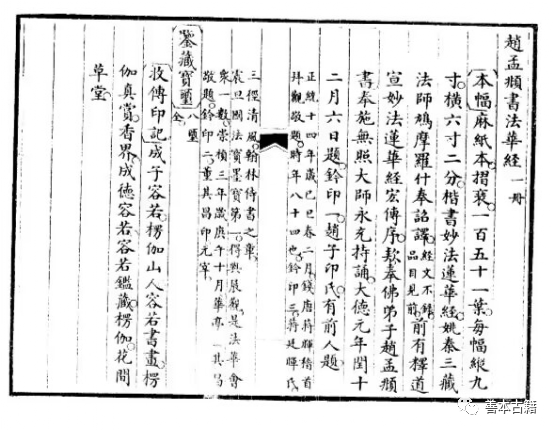 趙孟頫書法華經一冊
本幅麻紙本摺裝一百五十一葉每幅縱九
寸橫六寸二分楷書妙法蓮華經姚秦三藏
法師鳩摩羅什奉詔譯經文不錄品目見前前有釋道
宣妙法蓮華經宏傳序款奉佛弟子趙孟頫
書奉施無照大師永充持誦大德元年閏十
二月六日題鈐印一趙子印氏有前人題
正統十四年歲己巳春二月錢唐蔣暉稽首
拜觀敬題時年八十四也鈐印三蔣廷暉氏
三徑清風翰林侍書之章
震旦國法寶墨寶第一得興展觀是法華會
衆一數崇禎三年歲庚午十月華亭其昌
敬題鈐印二董其昌印元宰
鑒藏寶璽八璽全
收傳印記成子容若楞伽山人容若書畫楞
伽真賞香界成德容若容若鑑藏楞伽花間
草堂
善本古籍